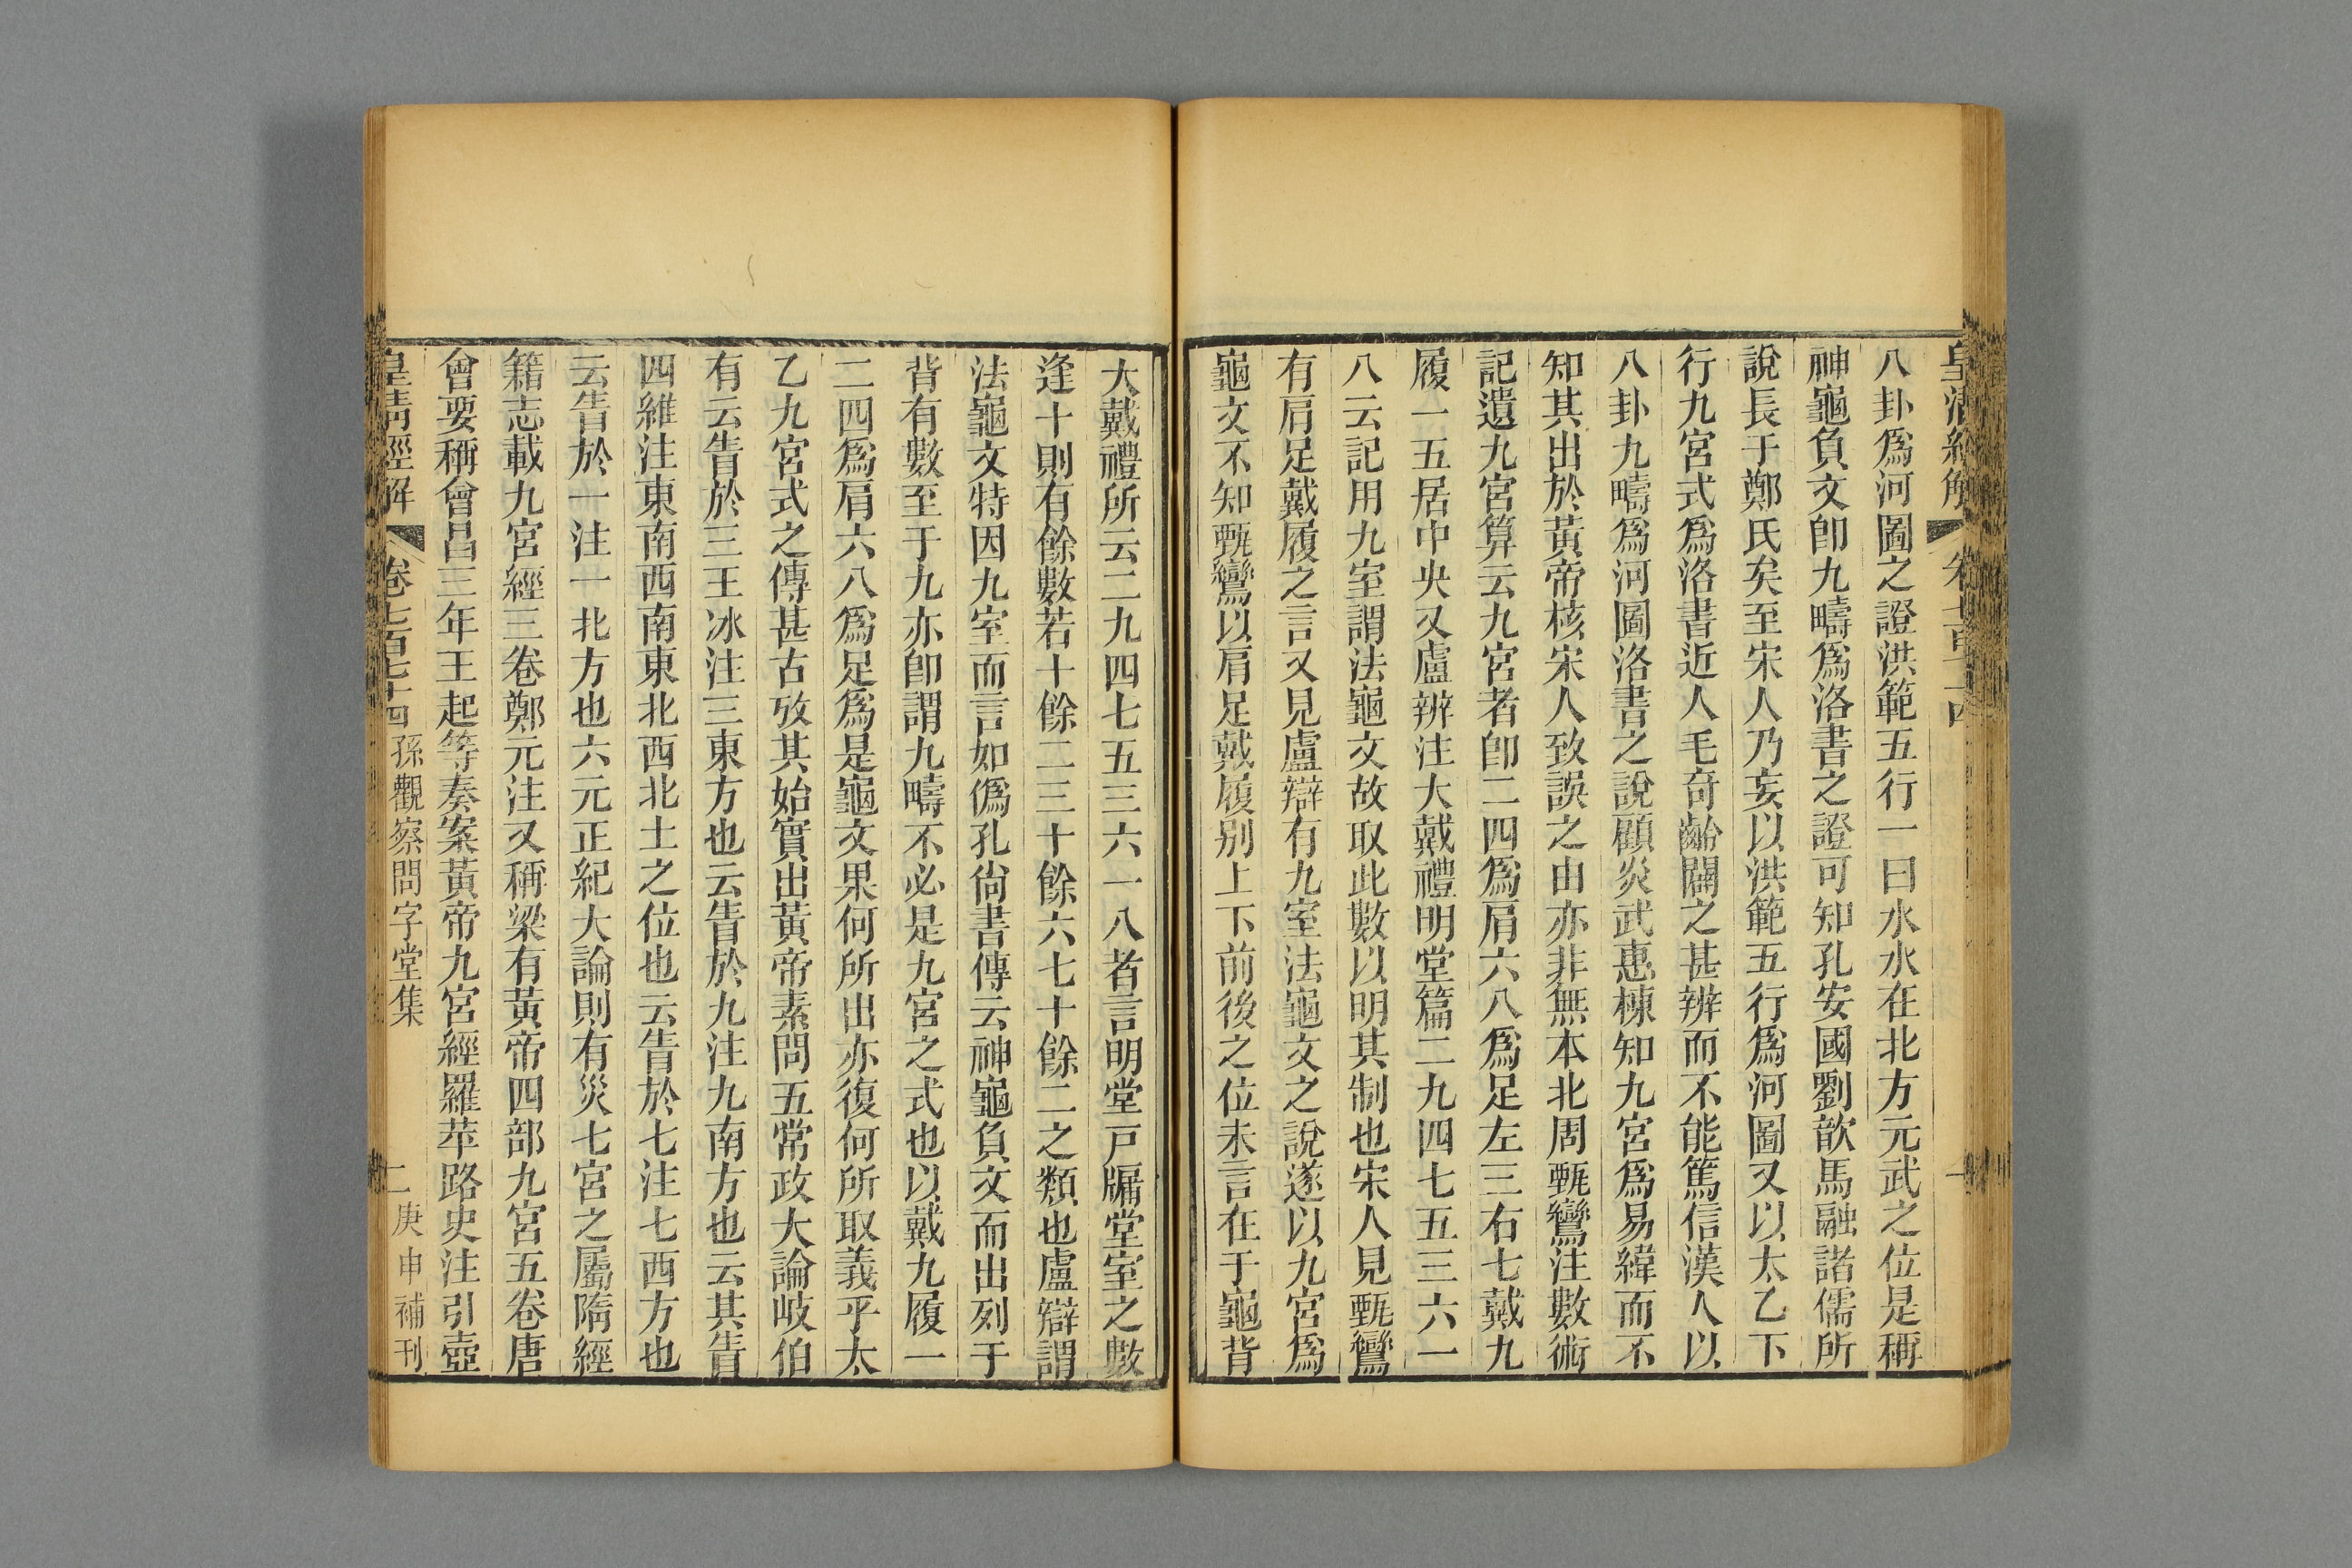 皇清經解 卷七百七十四 一
八卦爲河圖之證洪範五行一曰水水在北方元武之位是稱
神龜負文卽九疇爲洛書之證可知孔安國劉歆馬融諸儒所
說長于鄭氏矣至宋人乃妄以洪範五行爲河圖又以太乙下
行九宮式爲洛書近人毛奇齡闢之甚辨而不能篤信漢人以
八卦九疇爲河圖洛書之說顧炎武惠棟知九宮爲易緯而不
知其出於黃帝核宋人致誤之由亦非無本北周甄鸞注數術
記遺九宮算云九宮者卽二四爲肩六八爲足左三右七戴九
履一五居中央又盧辨注大戴禮明堂篇二九四七五三六一
八云記用九室謂法龜文故取此數以明其制也宋人見甄鸞
有肩足戴履之言又見盧辯有九室法龜文之說遂以九宮爲
龜文不知甄鸞以肩足戴履别上下前後之位未言在于龜背
大戴禮所云二九四七五三六一八者言明堂戸牖堂室之數
逢十則有餘數若十餘二三十餘六七十餘二之類也盧辯謂
法龜文特因九室而言如僞孔尙書傳云神龜負文而出列于
背有數至于九亦卽謂九疇不必是九宮之式也以戴九履一
二四爲肩六八爲足爲是龜文果何所出亦復何所取義乎太
乙九宮式之傳甚古攷其始實出黃帝素問五常政大論岐伯
有云眚於三王冰注三東方也云眚於九注九南方也云其眚
四維注東南西南東北西北土之位也云眚於七注七西方也
云眚於一注一北方也六元正紀大論則有災七宮之屬隋經
籍志載九宮經三卷鄭元注又稱梁有黃帝四部九宮五卷唐
會要稱會昌三年王起等奏案黃帝九宮經羅苹路史注引壺
皇清經解 卷七百七十四 孫觀察問字堂集 二 庚申補刊